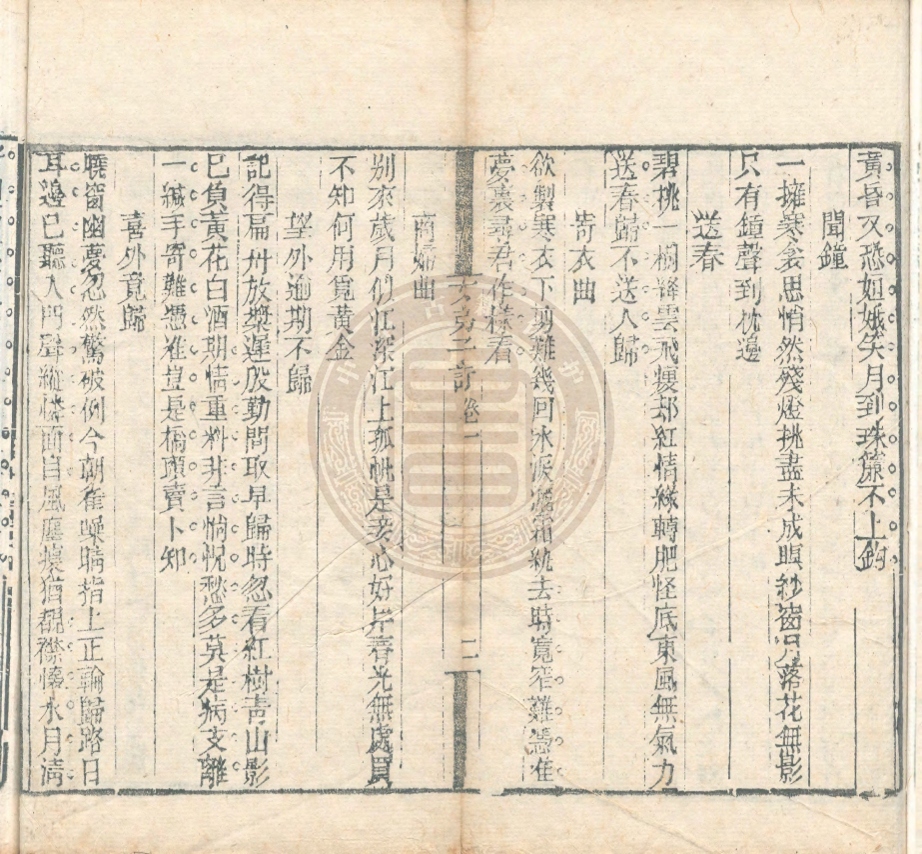 黃昏又恐姮娥笑月到珠簾不上鉤
聞鐘
一擁寒衾思悄然殘燈挑盡未成眠紗窗月落花無影
只有鐘聲到枕邊
送春
碧桃一樹絳雲飛瘦却紅情綠轉肥怪底東風無氣力
送春歸不送人歸
寄衣曲
欲製寒衣下剪難幾回冰淚霜紈去時寬窄難憑准
夢裏尋君作樣看
卷一
二
商婦曲
別來歲月似江深江上孤帆是妾心好岸春光無處買
不知何用覓黃金
望外逾期不歸
記得扁舟放槳遲殷勤問取早歸時忽看紅樹青山影
已負黃花白酒期情重料非言惝怳愁多莫是病支離
一緘手寄難憑准豈是橋頭賣卜知
喜外竟歸
曉窗幽夢忽然驚破例今朝雀噪晴指上正輪歸路日
耳邊已聽入門聲縱憐面目風塵瘦猶覩襟懷水月清